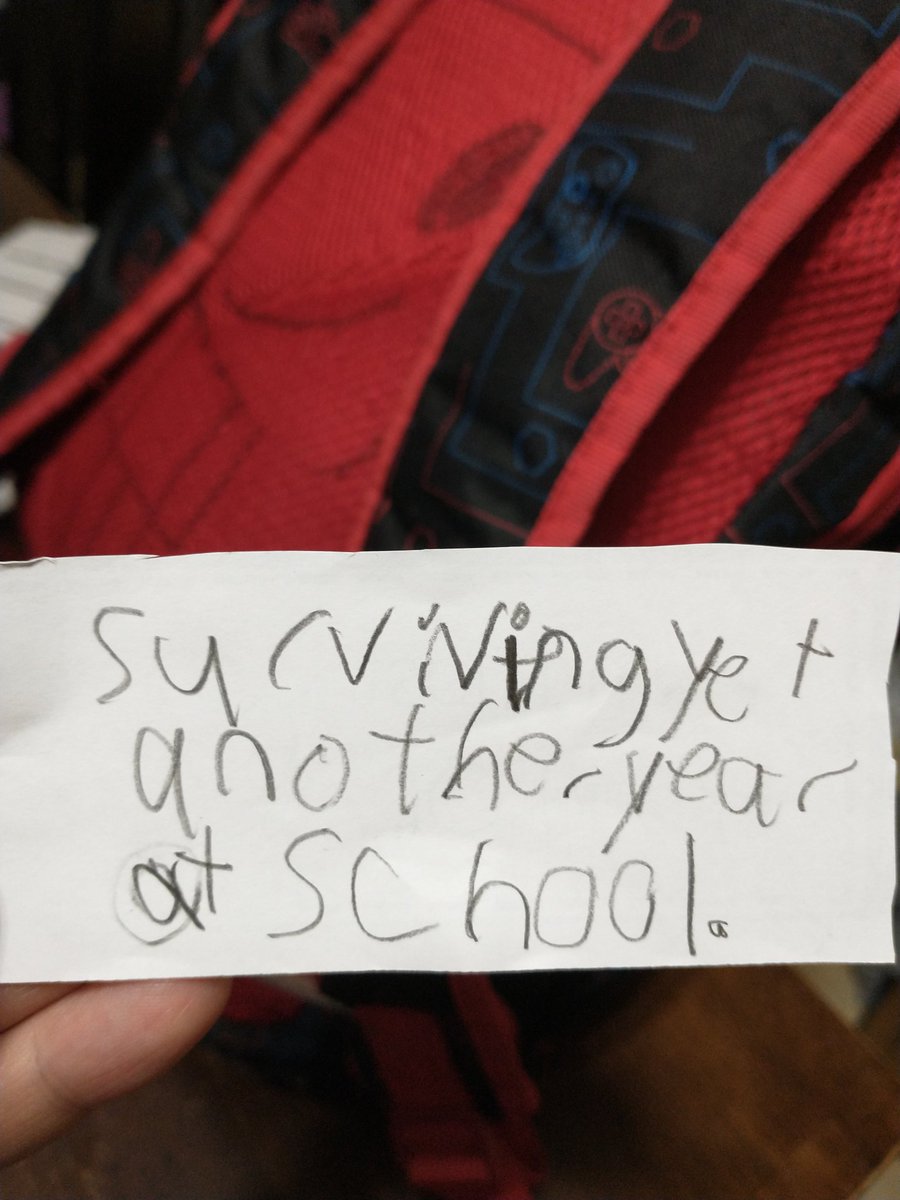 survining yet
another year
at school.